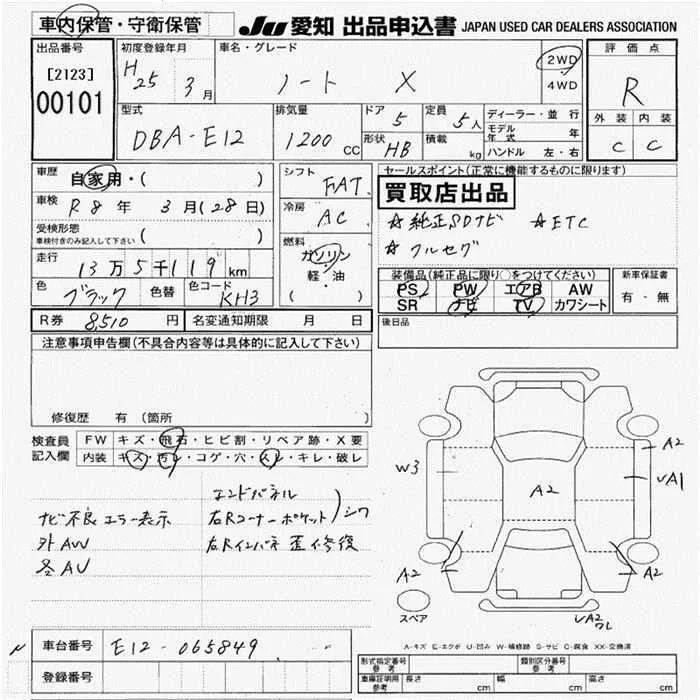 車内保管・守衛保管
JU 愛知 出品申込書 JAPAN USED CAR DEALERS ASSOCIATION
出品番号 初度登録年月 車名・グレード 評価点
[2123] H25年 3月 ノート X 2WD R
00101 4WD
型式 排気量 ドア 定員 ディーラー・並行 外装 内装
DBA-E12 1200cc 5 5人 モデル年式 年 C C
形状 HB 積載 kg ハンドル 左・右
車歴 自家用・( ) シフト FAT セールスポイント(正常に機能するものに限ります)
買取店出品
車検 R8年 3月(28日) 冷房 AC ☆純正SDナビ ☆ETC
受検形態 ( ) ☆フルセグ
車検付きのみ記入して下さい
走行 13万5千119km 燃料 ガソリン・軽・油 ( )
装備品(純正品に限り○をつけてください) 新車保証書
PS PW エアB AW 有・無
SR ナビ TV カワシート
色 ブラック 色替 色コード KH3
R券 8510円 名変通知期限 月 日 後日品
注意事項申告欄(不具合内容等は具体的に記入して下さい)
修復歴 有(箇所
検査員記入欄 FW キズ・飛石・ヒビ割・リペア跡・X要
内装 キズ・汚レ・コゲ・穴・スレ・キレ・破レ
エンドパネル
ナビ不良 エラー表示 右Rコーナーポケット シワ
外AW 右Rインパネ 歪 修復
冬AW
A2
W3
A2
VA1
A2
A2
スペア
VA2
ワレ
A-キズ E-エクボ U-凹み W-補修跡 S-サビ C-腐食 XX-交換済
車台番号 E12-065849
登録番号
型式指定番号 参考 類別区分番号 参考
車庫証明用 参考 長さ cm 幅 cm 高さ cm